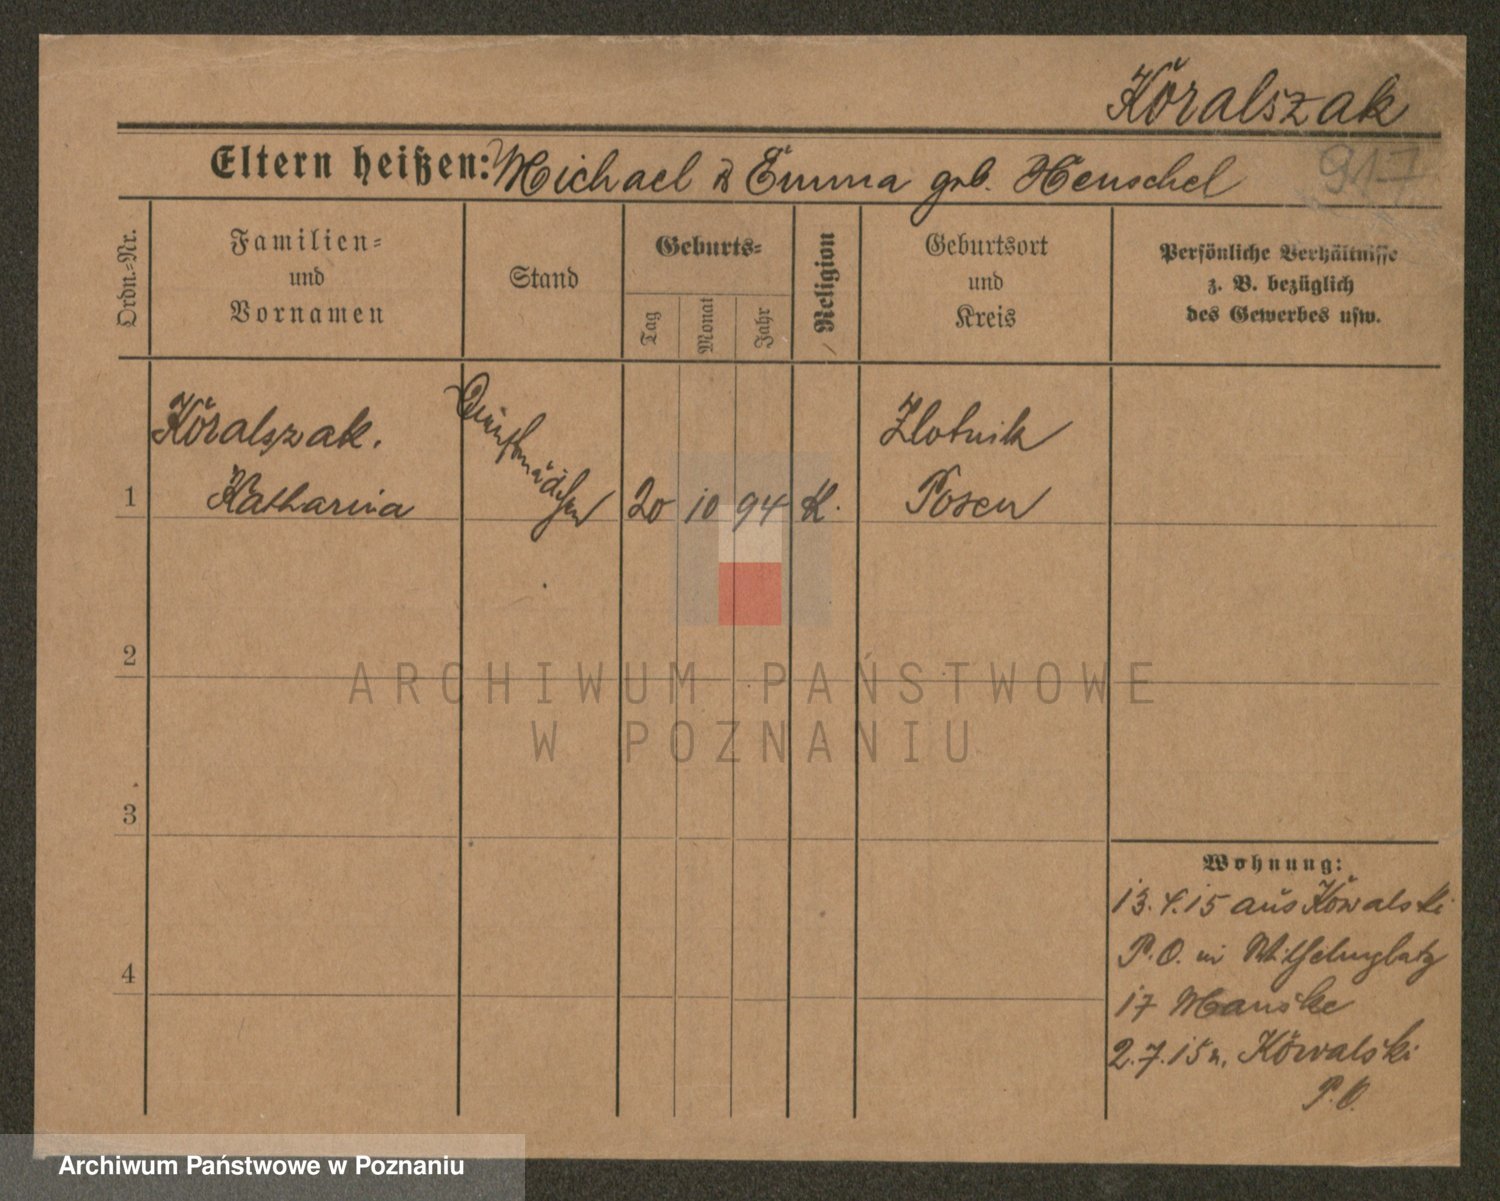 Koralszak
Eltern heißen: Michael & Emma geb. Henschel
917
Ordn.-Nr.
Familien-
und
Vornamen
Stand
Geburts-
Tag
Monat
Jahr
Religion
Geburtsort
und
Kreis
Persönliche Verhältnisse
z. B. bezüglich
des Gewerbes usw.
Koralszak.
Katharina
Dienstmädchen
1
20 10 94 K.
Zlotnik
Posen
2
ARCHIWUM PAŃSTWOWE
W POZNANIU
3
4
Wohnung:
13.4.15 aus Kowalski
P.O. in Wilhelmplatz
17 Manske
2.7.15 n. Kowalski
P.O.
Archiwum Państwowe w Poznaniu